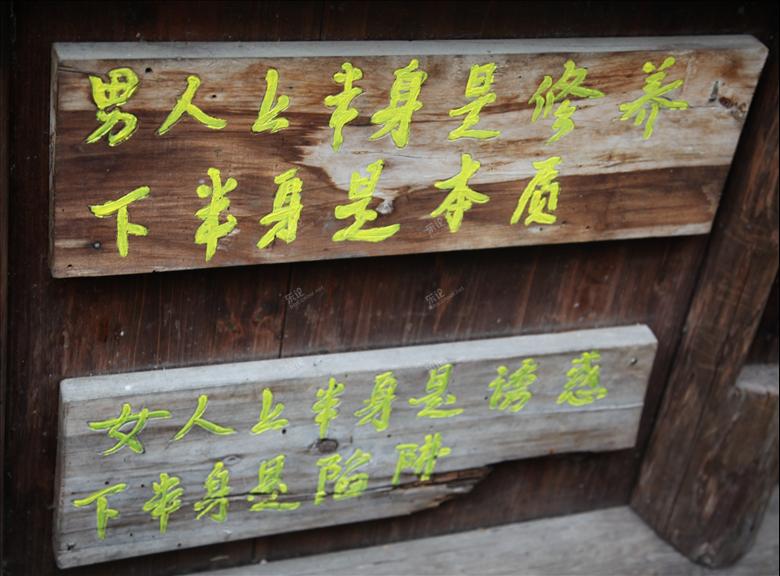 男人上半身是修养
下半身是本质
女人上半身是诱惑
下半身是陷阱